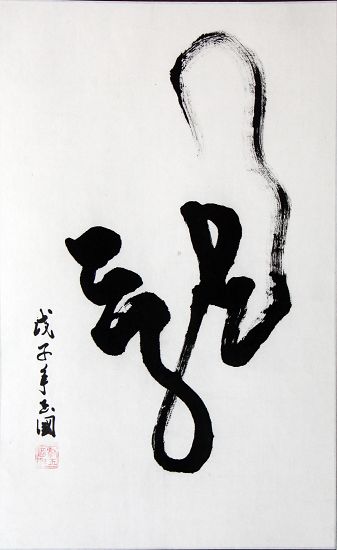 龍
戊子年玉國